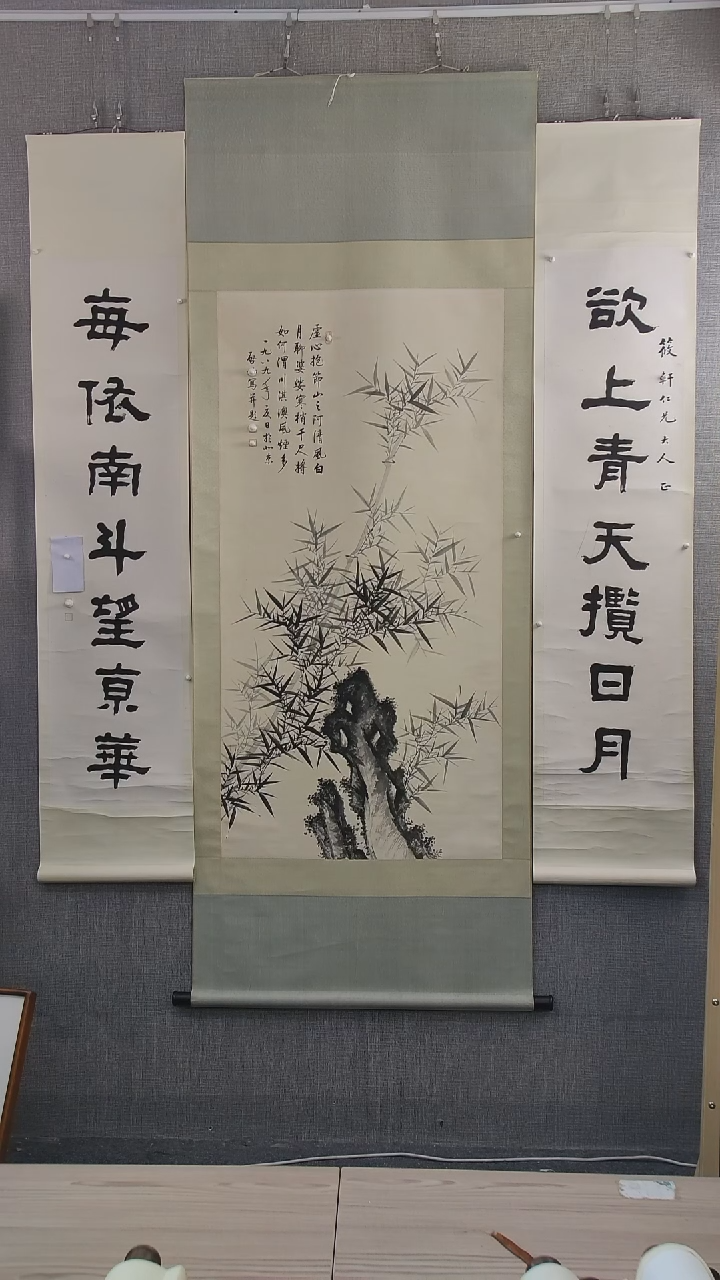 筱軒仁兄大人正
欲上青天攬日月
虛心抱節山之阿清風白
月聊婆娑寒梢千尺將
如何渭川淇澳風煙多
一九八九年夏日於北京
寫并題
每依南斗望京華